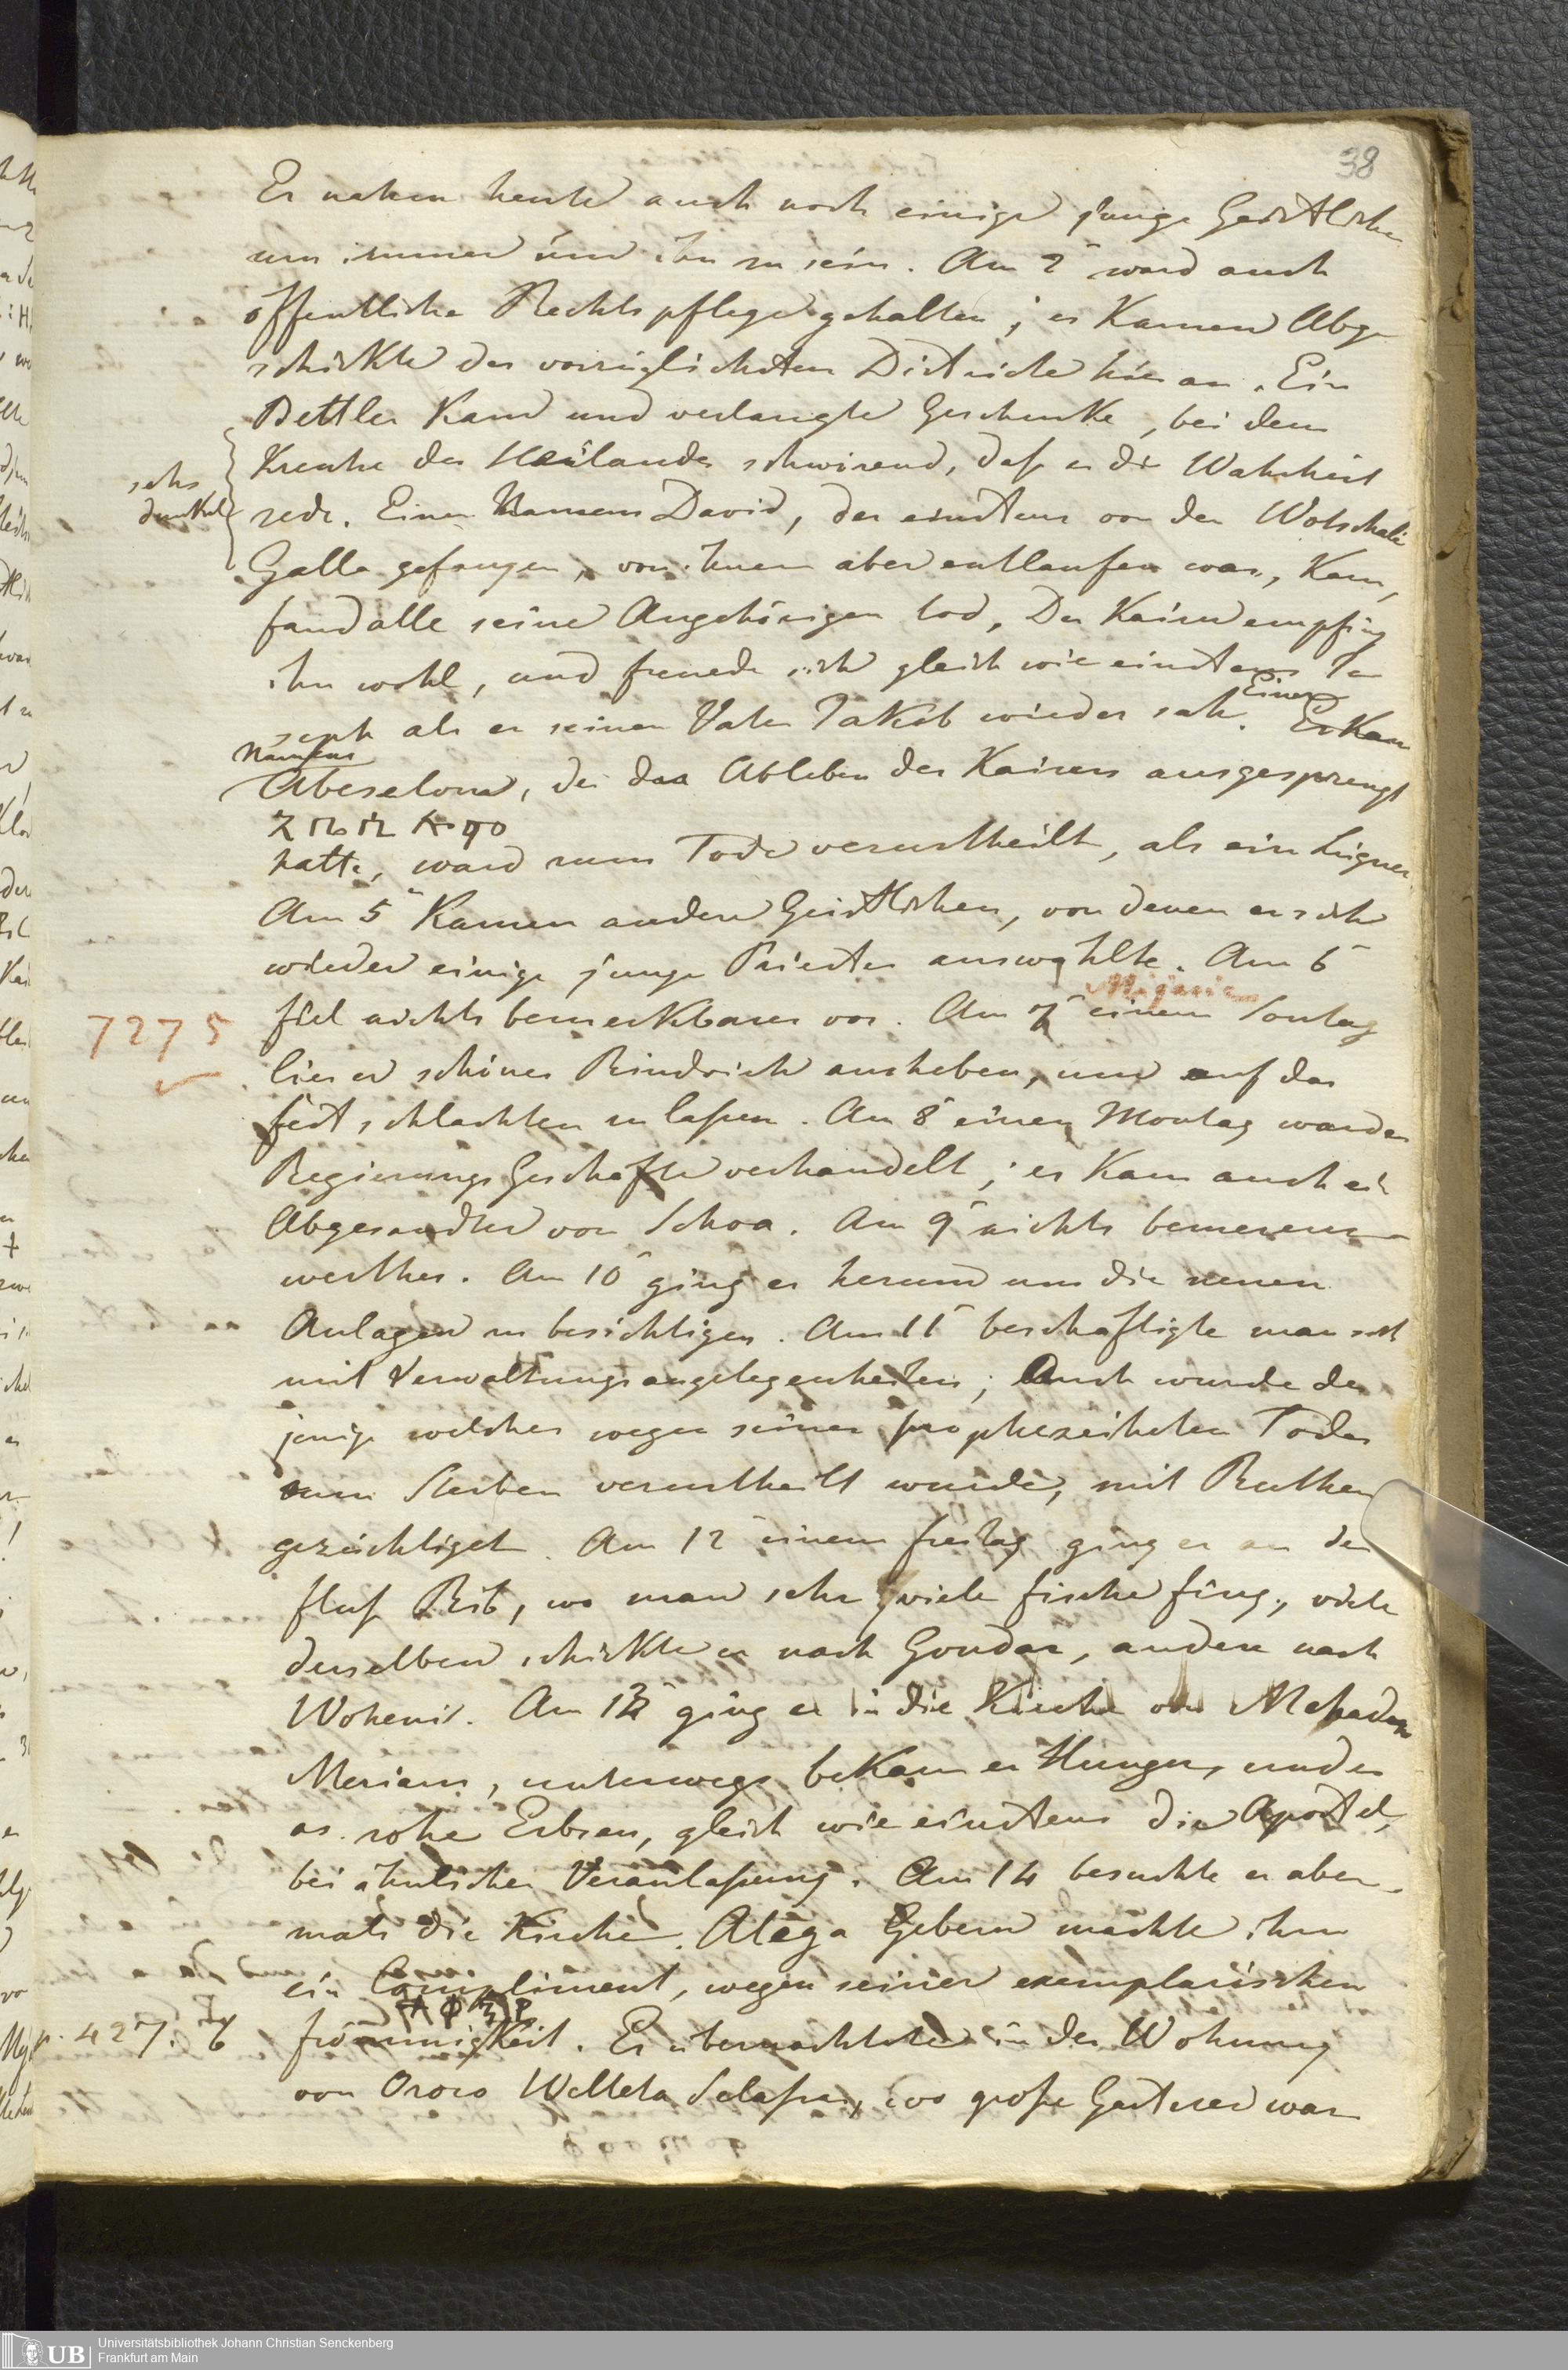 38
Er nahm heute auch noch einige junge Geistliche
um immer um ihn zu sein. Am 2 ward auch
öffentliche Rechtspflege gehalten; es kamen Abge
schickte der vorzüglichsten Districte hier an. Ein
Bettler kam und verlangte Geschenke, bei dem
Kreutze des Heilandes schwörend, daß er die Wahrheit
sehr
dunkel
rede. Einer Namens David, der einstens von den Wotschali
Galla gefangen, von ihnen aber entlaufen war, kam,
fand alle seine Angehörigen tod, Der Kaiser empfing
ihn wohl, und freuede sich gleich wie einstens Jo
seph als er seinen Vater Jakob wieder sah. Einer Er kam
Namens
Abeselom, der das Ableben des Kaisers ausgesprengt
hatte, ward zum Tode verurtheilt, als ein Lügner.
Am 5 kamen andere Geistlichen, von denen er sich
wieder einige junge Priester auswählte. Am 6
7275
fiel nichts bemerkbares vor. Am 7 einem Sontag
lies er schönes Rindvieh ausheben, um auf das
fest schlachten zu laßen. Am 8 einen Montag wurden
Regierungs Geschäfte verhandelt; es kam auch ein
Abgesandter von Schoa. Am 9 nichts bemerens
werthes. Am 10 ging er herum um die neuen
Anlagen zu besichtigen. Am 11 beschäftigte man sich
mit Verwaltungsangelegenheiten; Auch wurde der
jenige welcher wegen seines prophezeiheten Todes
zum Sterben verurtheilt wurde, mit Ruthen
gezüchtiget. Am 12 einem freitag ging er an den
fluß Rib, wo man sehr viele fische fing, viele
derselben schickte er nach Gondar, andere nach
Wohenis. Am 13 ging er in die Kirche von
Meriam, unterwegs bekam er Hunger, und er
as rohe Erbsen, gleich wie einstens die Apostel,
bei ähnlicher Veranlaßung. Am 14 besuchte er aber
mals die Kirche. Alega Gebern machte ihm
ein Compliment, wegen seiner exemplarischen
p. 427. b
frömmigkeit. Er übernachtete in der Wohnung
von Osoro Welleta Selaße, wo große Gasterei war
UB
Universitätsbibliothek Johann Christian Senckenberg
Frankfurt am Main